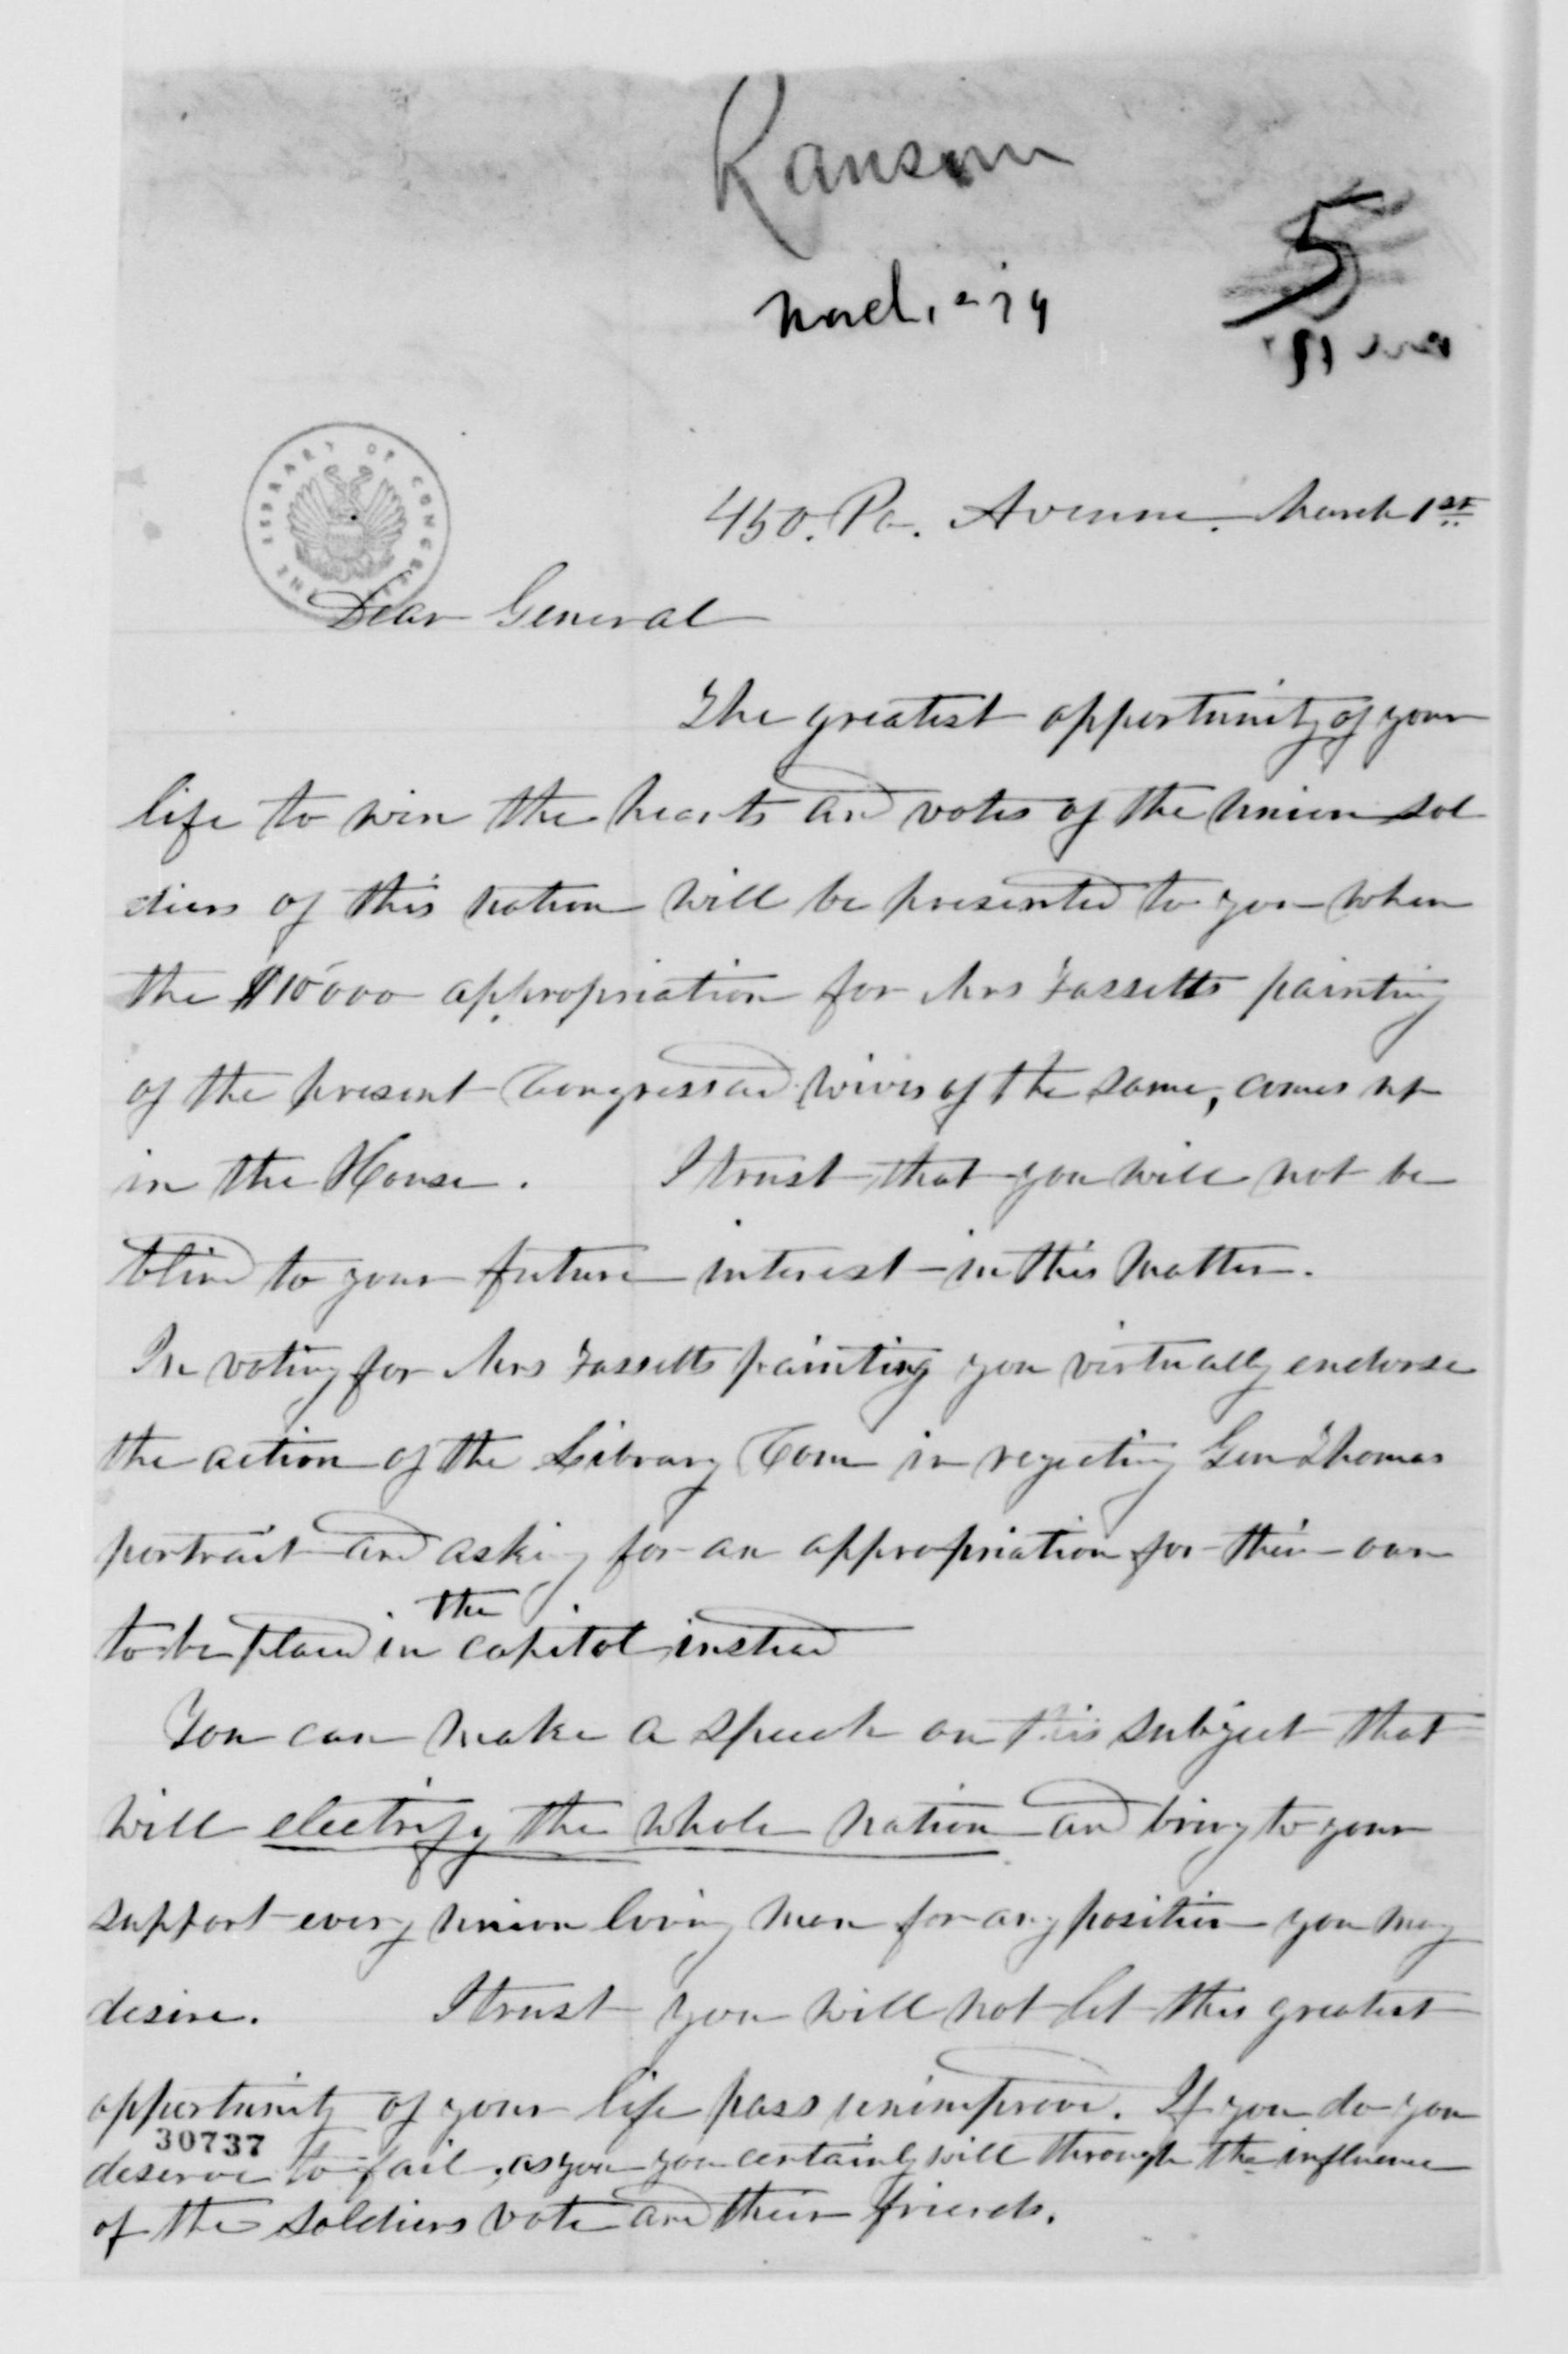 Ransom
March 1 79
5
450. Pa. Avenue. March 1st
THE LIBRARY OF CONGRESS
Dear General
The greatest opportunity of your
life to win the hearts and votes of the Union sol
diers of this nation will be presented to you when
the $15000 appropriation for Mrs Fassetts painting
of the present Congress and wives of the same, comes up
in the House. I trust that you will not be
blind to your future interest in this matter.
In voting for Mrs Fassetts painting you virtually endorse
the action of the Library Com in rejecting Gen Thomas
portrait and asking for an appropriation for their own
the
to be placed in capitol instead
You can make a speech on this subject that
will electrify the whole nation and bring to your
support every union loving man for any position you may
desire. I trust you will not let this greatest
opportunity of your life pass unimproved. If you do you
30737
deserve to fail, as you you certainly will through the influence
of the soldiers vote and their friends.